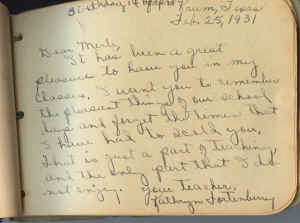 Birthday 14 of April
Krum, Texas
Feb. 25, 1931
Dear Merle,
It has been a great
pleasure to have you in my
classes. I want you to remember
the pleasant things of our school
days and forget the times that
I have had to scold you.
That is just a part of teaching,
and the only part that I do
not enjoy. Your teacher,
Kathryn Fortenberry